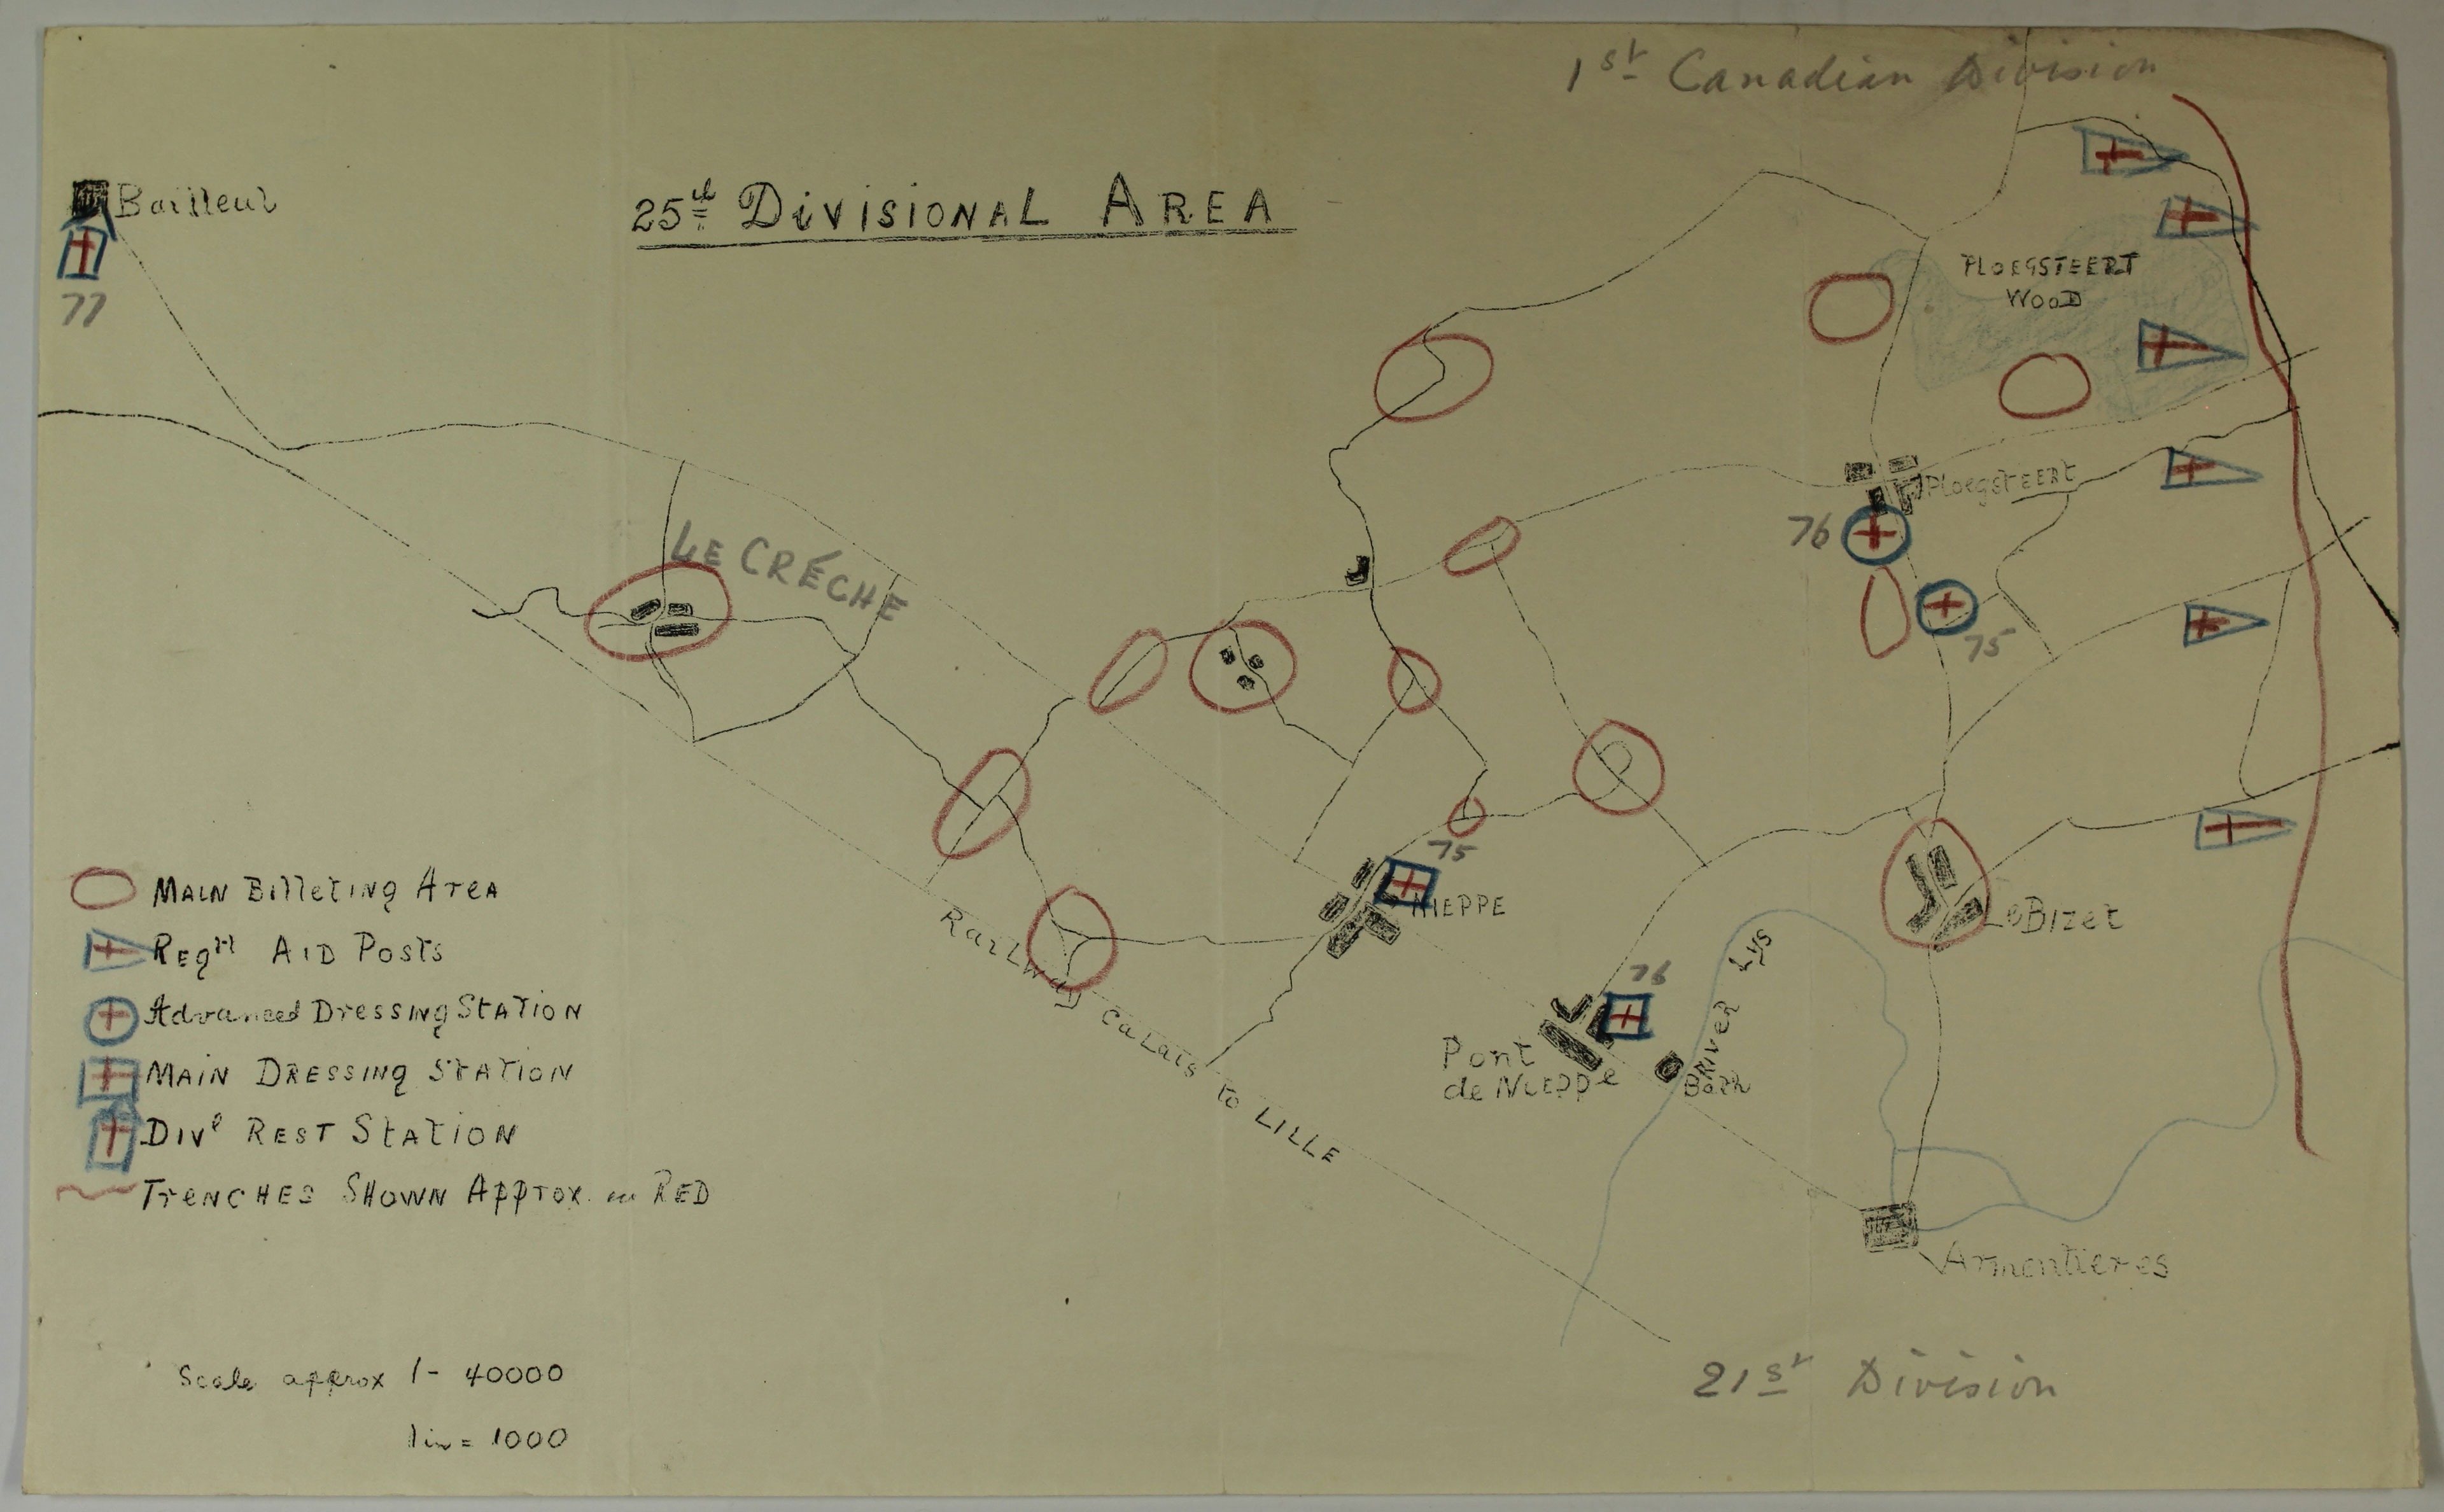 1st Canadian Division
25th Divisional Area
Bailleul
77
Ploegsteert
Wood
Le Crèche
Ploegsteert
76
75
75
Nieppe
Le Bizet
River Lys
76
Pont
de Nieppe
Bath
Railway Calais to Lille
Armentieres
Main Billeting Area
Regtl Aid Posts
Advanced Dressing Station
Main Dressing Station
Divl Rest Station
Trenches Shown Approx. in Red
Scale approx 1 - 40000
1 in = 1000
21st Division